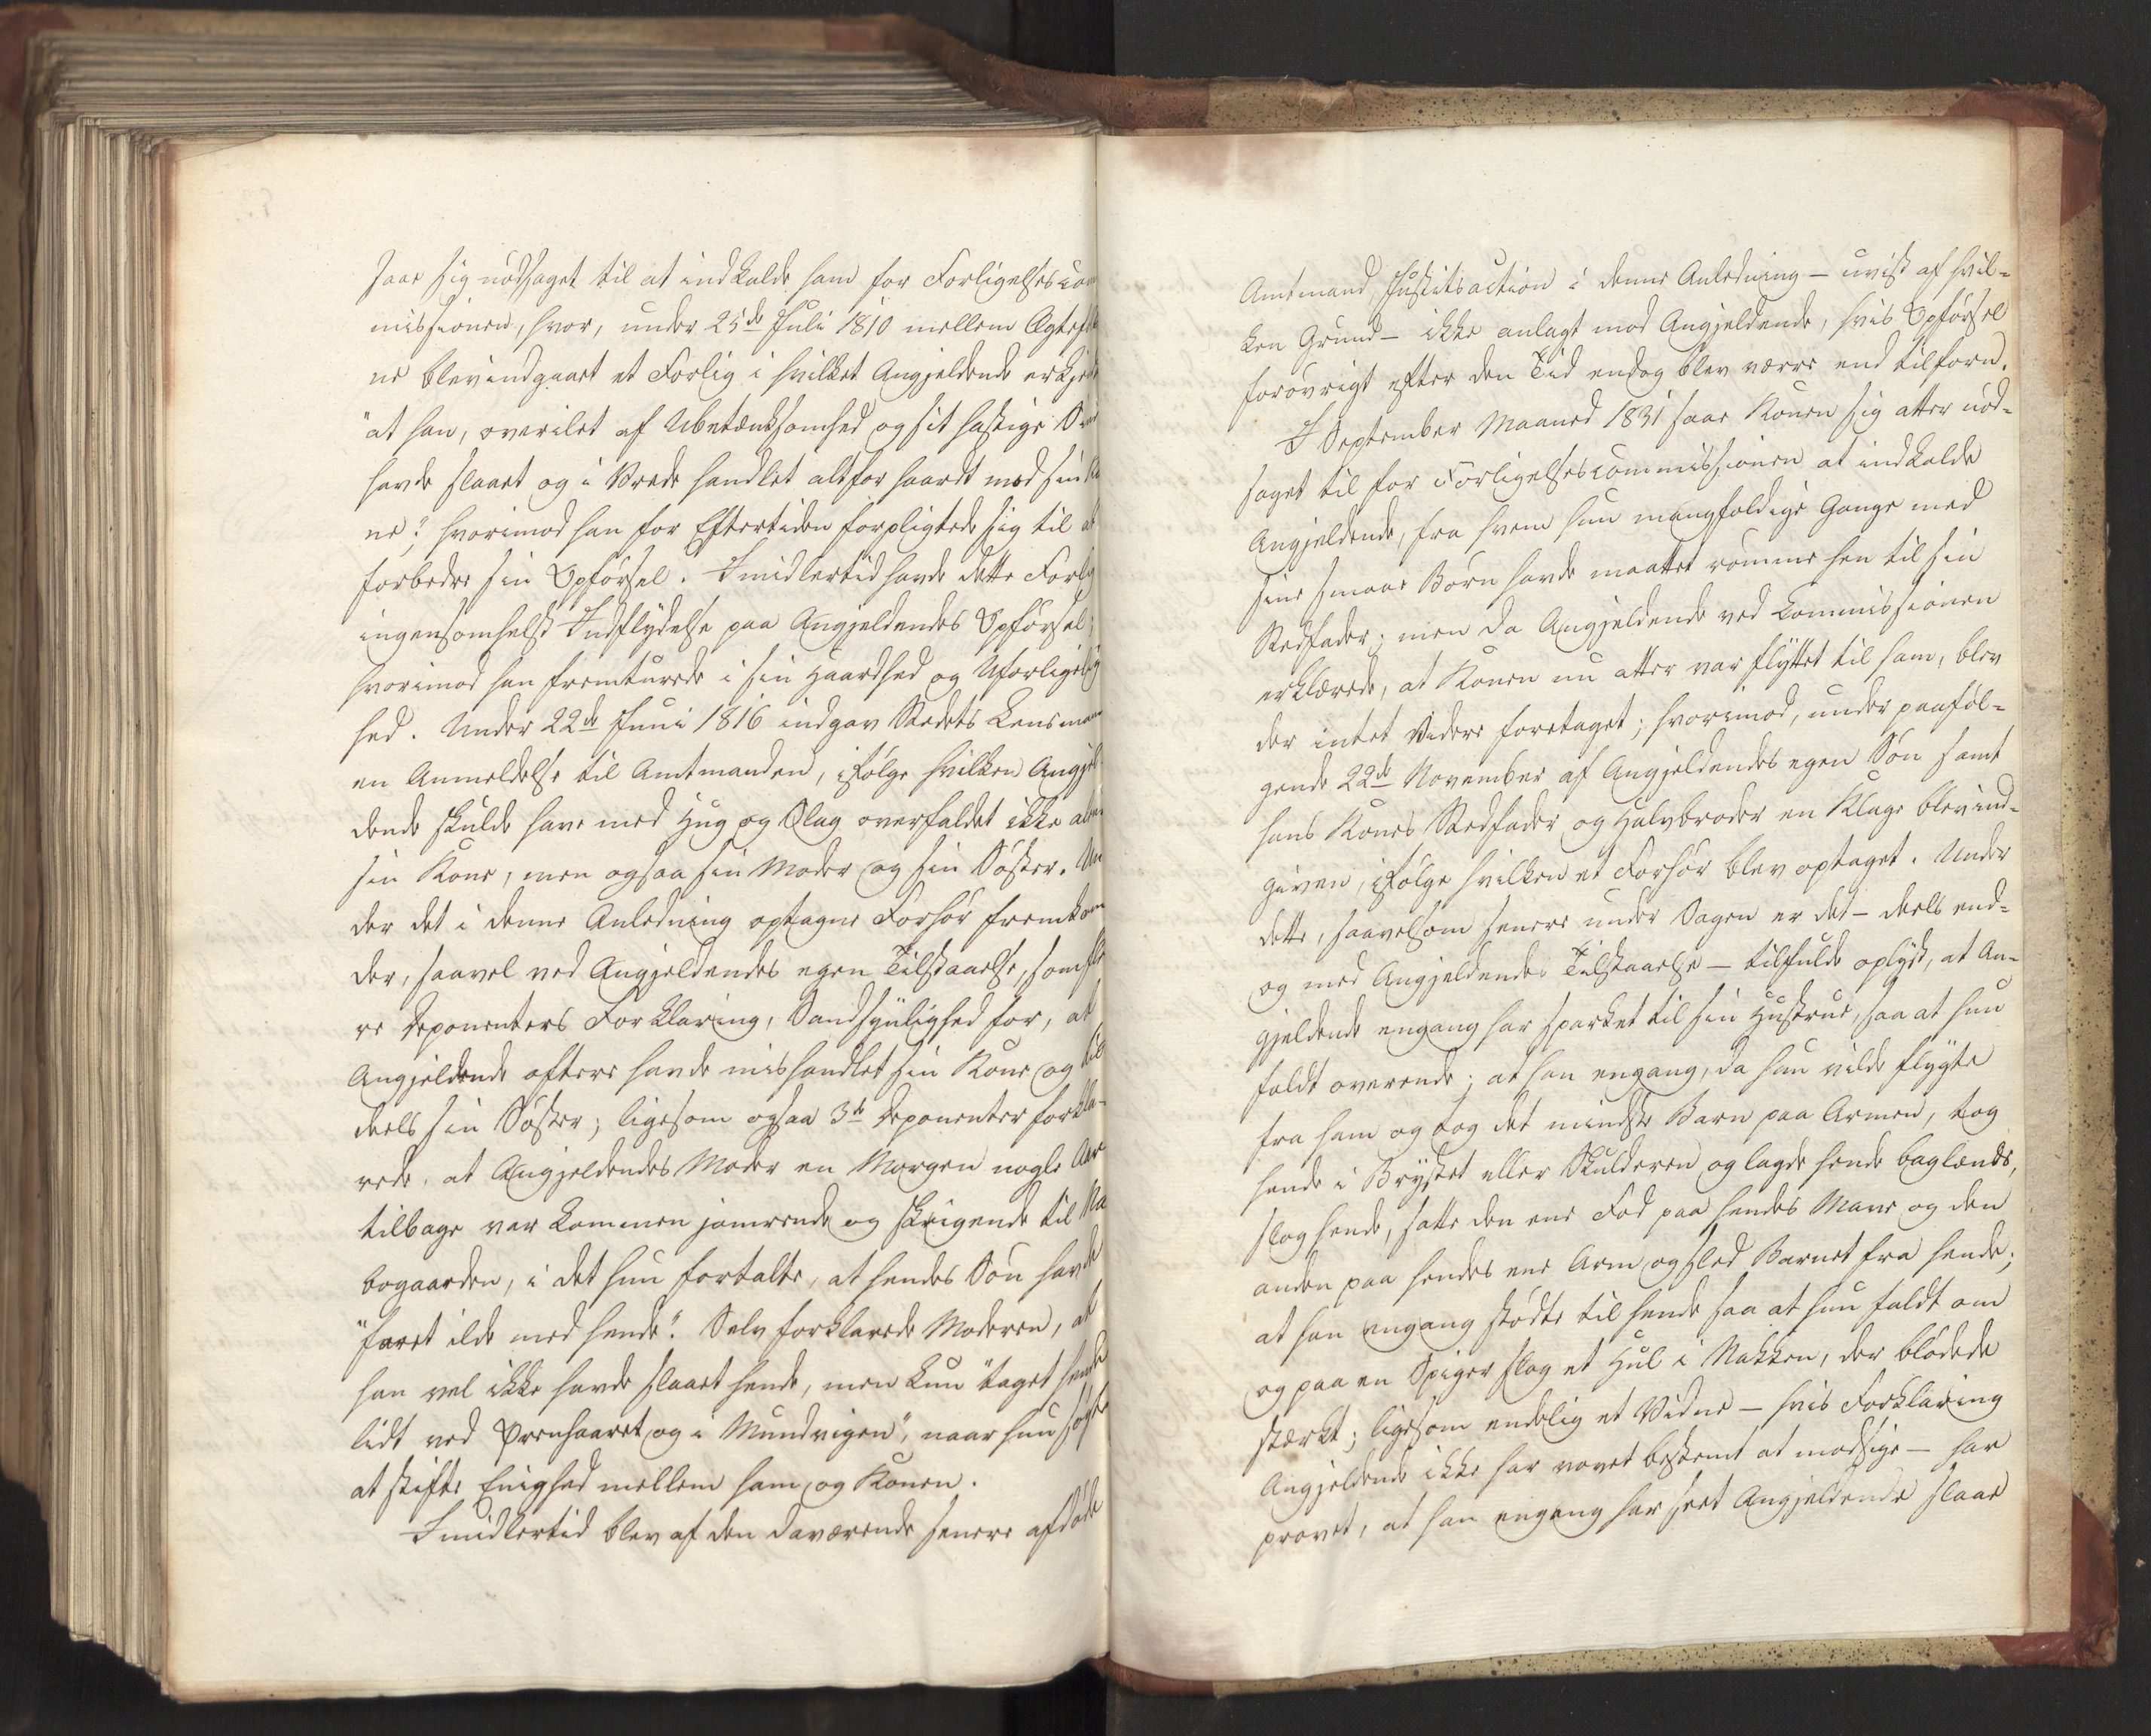 saae sig nødsaget til at indkalde ham for Forligelsescom
missionen, hvor, under 25de Juli 1810 mellem Ægtefol
ne blev indgaaet et Forlig i hvilket Angjeldende erkjend
"at han, overilet af Ubetænksomhed og sit hastige Sind
havde slaaet og i Vrede handlet altfor haardt mod sin Ko
ne"; hvorimod han for Eftertiden forpligtede sig til at
forbedre sin Opførsel. Imidlertid havde dette Forlig
ingensomhelst Indflydelse paa Angjeldendes Opførsel;
hvorimod han fremturede i sin Haardhed og Uforligelig
hed. Under 22de Juni 1816 indgav Stedets Lensman
en Anmeldelse til Amtmanden, ifølge hvilken Angjel
dende skulde have med Hug og Slag overfaldet ikke alene
sin Kone, men ogsaa sin Moder og sin Søster. Un
der det i denne Anledning optagne Forhør fremkom
der, saavel ved Angjeldendes egen Tilstaaelse, som fle
re Deponenters Forklaring, Sandsynlighed for, at
Angjeldende oftere havde mishandlet sin Kone og til
deels sin Søster; ligesom ogsaa 3de Deponenter forkla-
rede, at Angjeldendes Moder en Morgen nogle Aar
tilbage var kommen jamrende og skrigende til Na
bogaarden, i det hun fortalte, at hendes Søn havde
"faret ilde med hende". Selv forklarede Moderen, at
han vel ikke havde slaaet hende, men kun "taget hende
lidt ved Ørenhaaret og i Mundvigen", naar hun søgte
at stifte Enighed mellem ham og Konen.
Imidlertid blev af den daværende senere afdøde
Amtmand Justitsaction i denne Anledning - uvist af hvil-
ken Grund - ikke anlagt mod Angjeldende, hvis Opførsel
forøvrigt efter den Tid endog blev værre end tilforn.
I September Maaned 1831 saae Konen sig atter nød-
saget til for Forligelsescommissionen at indkalde
Angjeldende, fra hvem hun mangfoldige Gange med
sine smaae Børn havde maattet rømme hen til sin
Stedfader; men da Angjeldende ved Kommissionen
erklærede, at Konen nu atter var flyttet til ham, blev
der intet Videre foretaget; hvorimod, under paaføl-
gende 22de November af Angjeldendes egen Søn samt
hans Kones Stedfader og Halvbroder en Klage blev ind-
given, ifølge hvilken et Forhør blev optaget. Under
dette, saavelsom senere under Sagen er det - deels end-
og med Angjeldendes Tilstaaelse - tilfulde oplyst, at An-
gjeldende engang har sparket til sin Hustrue, saa at hun
faldt overende; at han engang, da hun vilde flygte
fra ham og tog det mindste Barn paa Armen, tog
hende i Brystet eller Skulderen og lagde hende baglænds,
slog hende, satte den ene Fod paa hendes Mave og den
anden paa hendes ene Arm og sled Barnet fra hende;
at han engang stødte til hende saa at hun faldt om
og paa en Spiger slog et Hul i Nakken, der blødede
stærkt; ligesom endelig et Vidne - hvis Forklaring
Angjeldende ikke har vovet bestemt at modsige - har
provet, at han engang har seet Angjeldende slaae